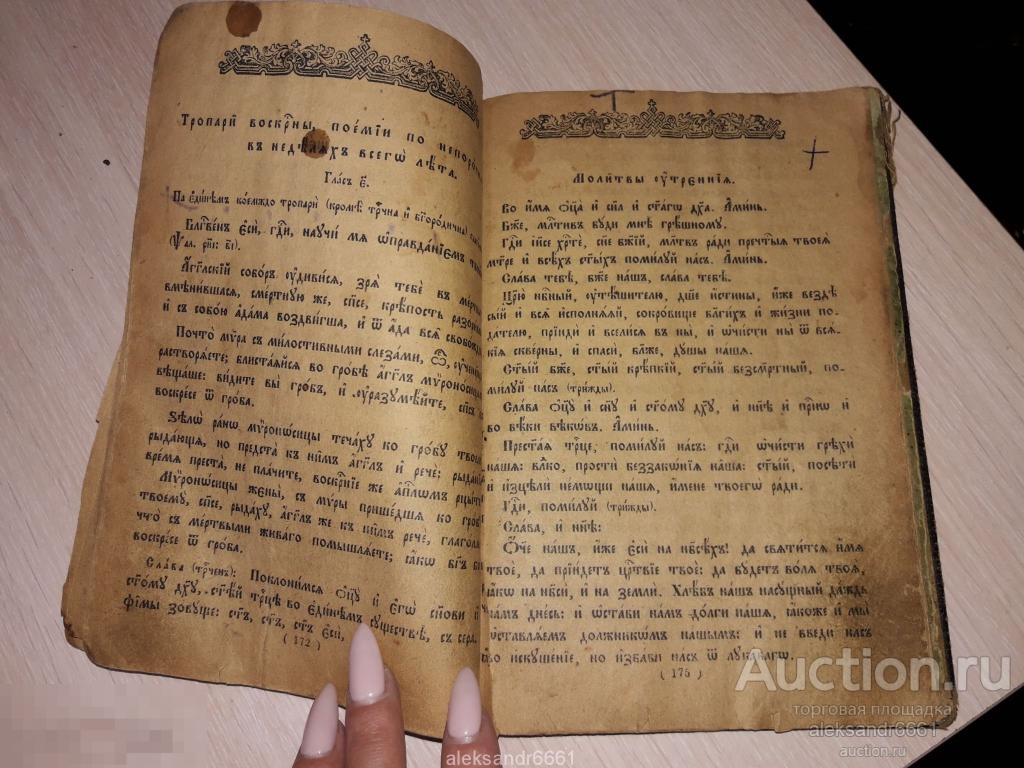 Тропари̑ воскрⷭ҇ны, пое́мїи по непоро́
въ недѣ́лѧхъ всегѡ̀ лѣ́та.
Гла́съ є҃.
По є҆ди́нѣмъ коемꙋ́ждо тропари̑ (кромѣ̀ трⷪ҇чна и҆ бг҃оро́дична)
Блгⷭ҇ве́нъ є҆сѝ, гдⷭ҇и, наꙋчи́ мѧ ѡ҆правда́нїємъ
(Ѱал. рн҃і: в҃і).
А҆́гг҃лскїй собо́ръ ᲂу҆диви́сѧ, зрѧ̀ тебѐ въ ме́ртвы
вмѣни́вшасѧ, сме́ртнꙋю же, сп҃се, крѣ́пость разори́в
и҆ съ собо́ю а҆да́ма воздви́гша, и҆ ѿ а҆́да всѧ̑ свобо́жд
Почто̀ мѵ́ра съ ми́лостивными слеза́ми,
растворѧ́ете; блиста́ѧйсѧ во гро́бѣ а҆́гг҃лъ мѵронѡ́сиц
вѣща́ше: ви́дите вы̀ гро́бъ, и҆ ᲂу҆разꙋмѣ́йте, сп҃съ
воскре́се ѿ гро́ба.
Ѕѣлѡ̀ ра́нѡ мѵронѡ́сицы теча́хꙋ ко гро́бꙋ твоемꙋ̀
рыда́ющѧ, но предста̀ къ ни̑мъ а҆́гг҃лъ и҆ речѐ: рыда́нїѧ
вре́мѧ преста̀, не пла́чите, воскрⷭ҇нїе же а҆пⷭ҇лѡмъ рцы́те
Мѵронѡ́сицы жены̑, съ мѵ́ры прише́дшѧ ко гро́бꙋ
твоемꙋ̀, сп҃се, рыда́хꙋ, а҆́гг҃лъ же къ ни̑мъ речѐ, глаго́лѧ
что̀ съ ме́ртвыми жива́го помышлѧ́ете; ꙗ҆́кѡ бг҃ъ бо
воскре́се ѿ гро́ба.
Сла́ва (трⷪ҇ченъ): Поклони́мсѧ ѻ҆ц҃ꙋ̀ и҆ є҆гѡ̀ сн҃ови и҆
ст҃о́мꙋ дх҃ꙋ, ст҃ѣ́й трⷪ҇цѣ во є҆ди́нѣмъ сꙋществѣ̀, съ сера-
фі̑мы зовꙋ́ще: ст҃ъ, ст҃ъ, ст҃ъ є҆сѝ,
( 172 )
Моли̑твы ᲂу҆́трєннїѧ.
Во и҆́мѧ ѻ҆ц҃а̀ и҆ сн҃а и҆ ст҃а́гѡ дх҃а. А҆ми́нь.
Бж҃е, млⷭ҇тивъ бꙋ́ди мнѣ̀ грѣ́шномꙋ.
Гдⷭ҇и і҆и҃се хрⷭ҇тѐ, сн҃е бж҃їй, млт҃въ ра́ди пречⷭ҇тыѧ твоеѧ̀
мт҃ре и҆ всѣ́хъ ст҃ы́хъ поми́лꙋй на́съ. А҆ми́нь.
Сла́ва тебѣ̀, бж҃е на́шъ, сла́ва тебѣ̀.
Цр҃ю̀ нбⷭ҇ный, ᲂу҆тѣ́шителю, дш҃е и҆́стины, и҆́же вездѣ̀
сы́й и҆ всѧ̑ и҆сполнѧ́ѧй, сокро́вище благи́хъ и҆ жи́зни по-
да́телю, прїидѝ и҆ всели́сѧ въ ны̀, и҆ ѡ҆чи́сти ны̀ ѿ всѧ́-
кїѧ скве́рны, и҆ спасѝ, бл҃же, дꙋ́шы на́шѧ.
Ст҃ы́й бж҃е, ст҃ы́й крѣ́пкїй, ст҃ы́й безсме́ртный, по-
ми́лꙋй на́съ (три́жды).
Сла́ва ѻ҆ц҃ꙋ̀ и҆ сн҃ꙋ и҆ ст҃о́мꙋ дх҃ꙋ, и҆ нн҃ѣ и҆ при́снѡ и҆
во вѣ́ки вѣкѡ́въ. А҆ми́нь.
Прест҃а́ѧ трⷪ҇це, поми́лꙋй на́съ: гдⷭ҇и ѡ҆чи́сти грѣхѝ
на́шѧ: влⷣко, простѝ беззакѡ́нїѧ на́ша: ст҃ы́й, посѣтѝ
и҆ и҆сцѣлѝ не́мѡщи на́шѧ, и҆́мене твоегѡ̀ ра́ди.
Гдⷭ҇и, поми́лꙋй (три́жды).
Сла́ва, и҆ нн҃ѣ:
Ѻ҆́ч҃е на́шъ, и҆́же є҆сѝ на нб҃сѣ́хъ! да свѧти́тсѧ и҆́мѧ
твоѐ, да прїи́детъ црⷭ҇твїе твоѐ: да бꙋ́детъ во́лѧ твоѧ̀,
ꙗ҆́кѡ на нб҃сѝ, и҆ на землѝ. Хлѣ́бъ на́шъ насꙋ́щный да́ждь
на́мъ дне́сь: и҆ ѡ҆ста́ви на́мъ до́лги на́шѧ, ꙗ҆́коже и҆ мы̀
ѡ҆ставлѧ́емъ должникѡ́мъ на́шымъ: и҆ не введѝ на́съ
во и҆скꙋше́нїе, но и҆зба́ви на́съ ѿ лꙋка́вагѡ.
( 173 )
Auction.ru
торговая площадка
aleksandr6661
auction.ru
aleksandr6661